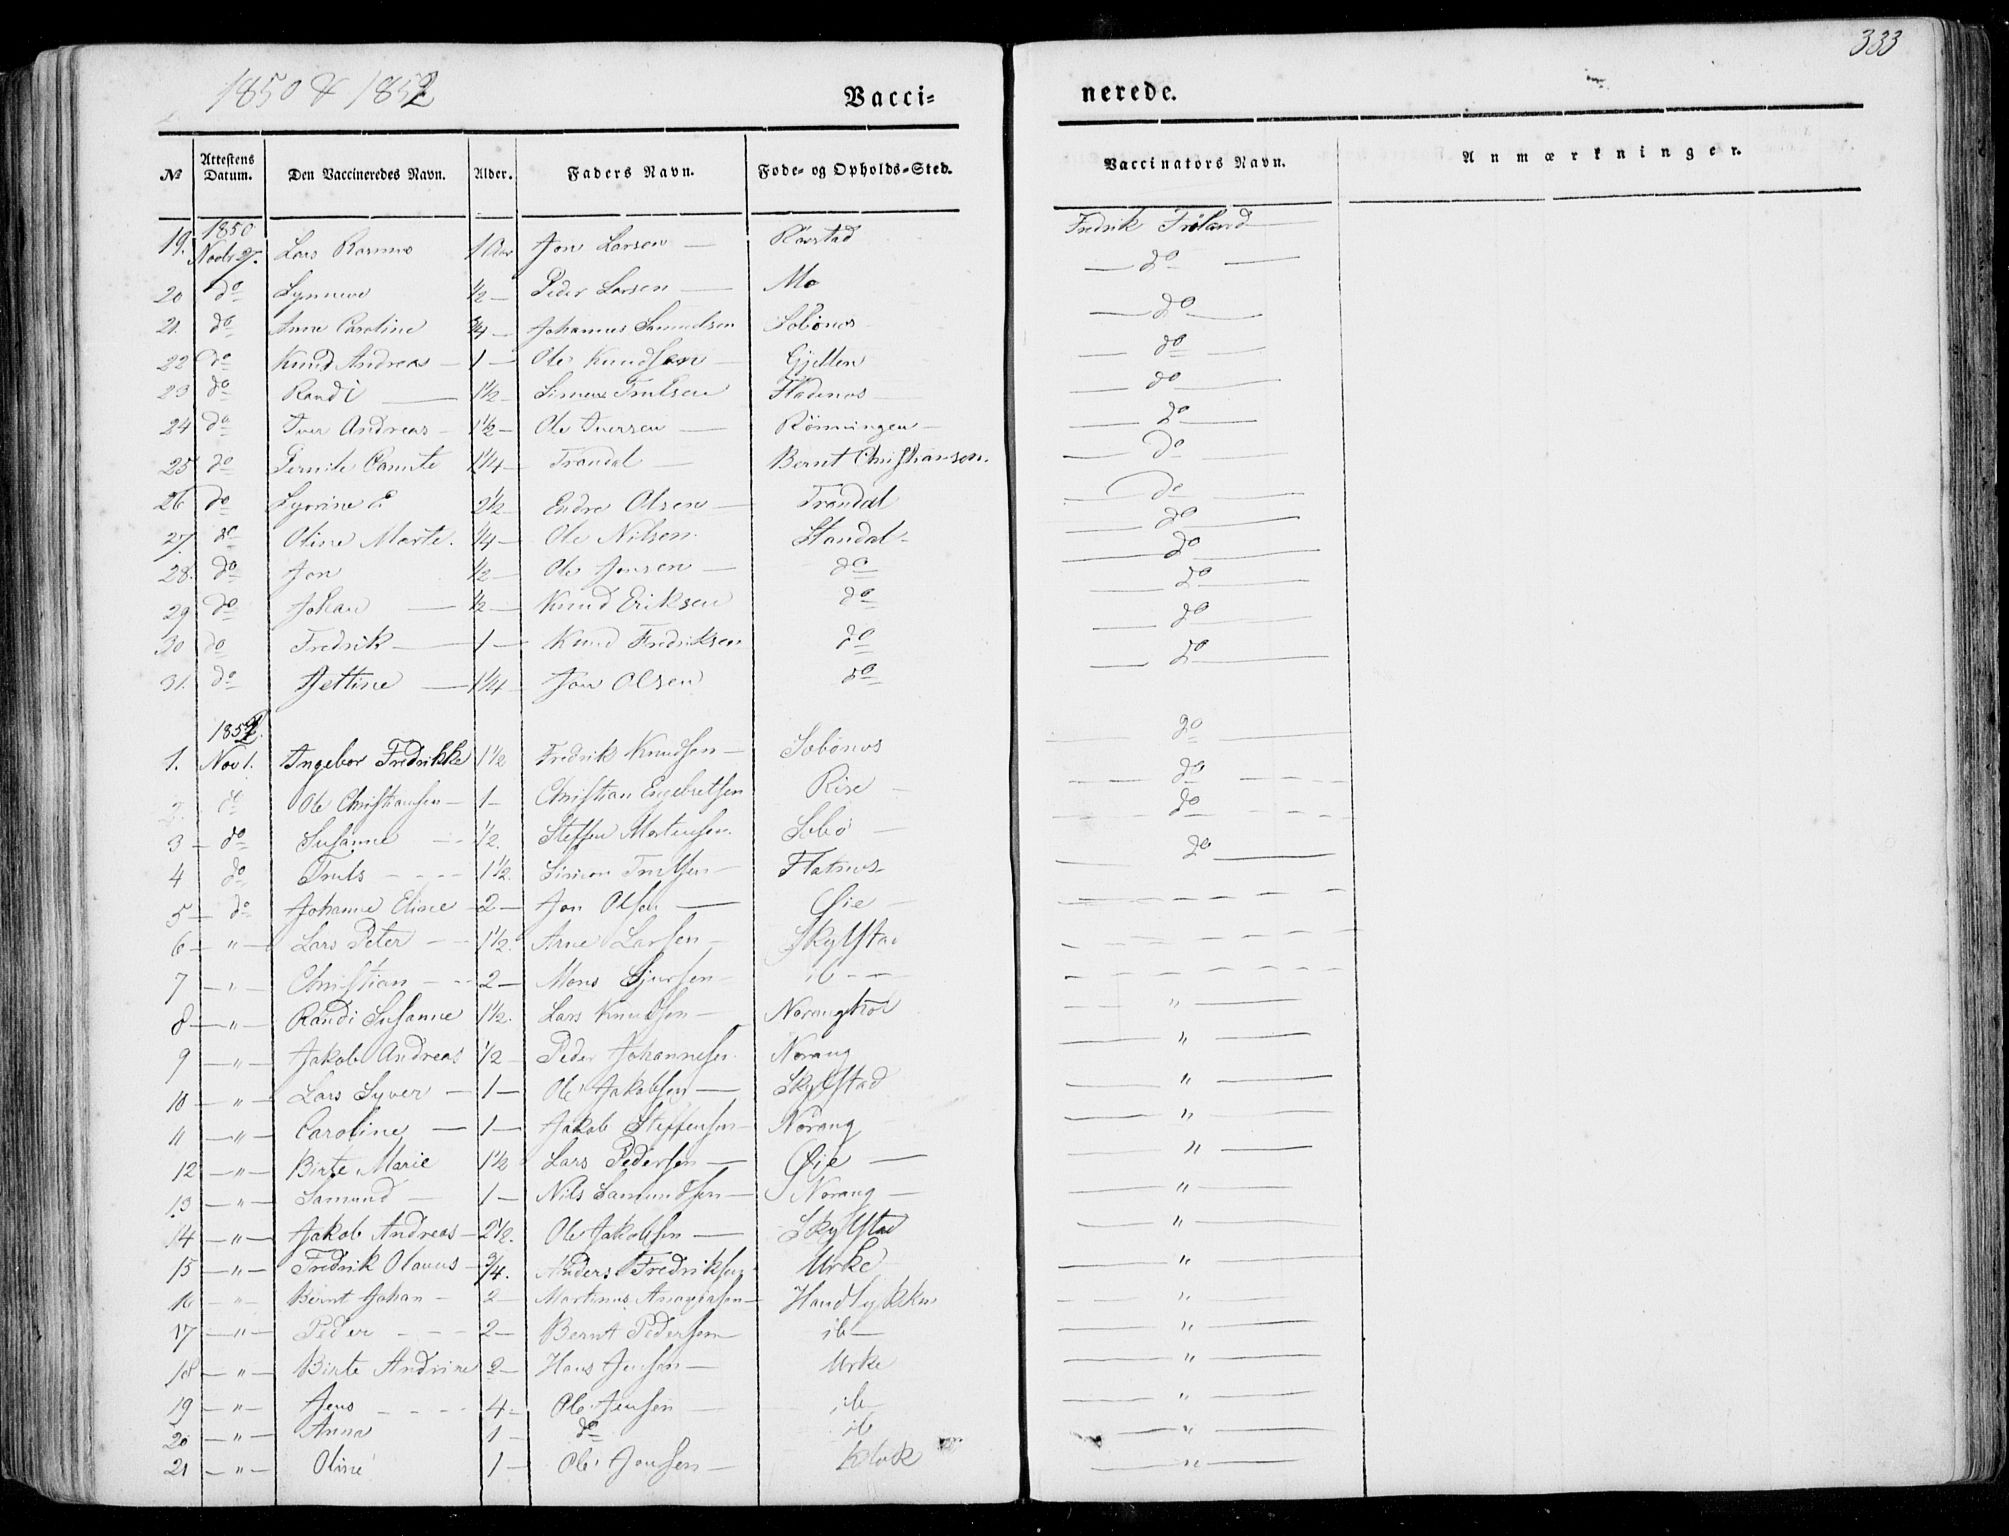 333
1850 & 1852
Vacci-
nerede.
№ Attestens Datum. Den Vaccineredes Navn. Alder. Faders Navn. Føde- og Opholds-Sted. Vaccinators Navn. Anmærkninger.
1850
19. Novbr 27. Lars Rasmus 1 Aar Jon Larsen — Fredrik Tröland
20 do ½ — Peder Larsen — Mo — do —
21. do Anne Caroline ¾ — Johannes Samuelsen Sæbönæs — do —
22 do Knud Andreas — 1 — Ole Knudsen — Gjetten — do —
23 do Randi — 1½ — Simen Trulsen Fladenæs — do —
24 do Iver Andreas — 1½ — Ole Iversen — Rönningen — — do —
25 do 1¼ — Trandal — Bernt Christiansen. — do —
26 do E 2½ Endre Olsen — Trandal — do —
27. do Oline Marte. ¼ — Ole Nilsen. Standal — — do —
28. do Jon ½ — Ole Jonsen — do — do —
29 do Johan — ½ — Knud Eriksen do — do —
30 do Fredrik — 1 — Knud Fredriksen do — do —
31. do Jettine — 1¼ — Jon Olsen do — do —
1852.
1. Nov 1. Ingebor Fredrikke 1½ Fredrik Knudsen — Sæbönæs — do —
2. do Ole Christiansen — 1 — Christian Engebretsen Rise — — do —
3 — do Susanne — ½. Steffen Martinsen. Sæbö — — do —
4 do Truls — 1½. Simen Trulsen — Flatnæs — do —
5 — do Johanne Eline — 2 — Jon Olsen — Øie —
6 — " — Lars Peter — 1½. Arne Larsen — Skylstad
7 — " — Christian — 2 — Mons Sjursen — ib —
8 — " — Randi Susanne 1½. Lars Knudsen — — " —
9 — " — Jakob Andreas ½ — Peder Johannesen. Norang — " —
10 — " — Lars Syver — 1 — Ole Jakobsen — Skylstad — " —
11 — " — Caroline — 1 — Jakob Steffensen — Norang — " —
12 — " — Birte Marie 1½ Lars Pedersen — Øie — — " —
13 — " — Samund — 1 — Nils Samundsen — Norang — — " —
14 — " — Jakob Andreas — 2½. Ole Jakobsen — Skylstad — " —
15 — " — Fredrik Olauus — ¾. Anders Fredriksen Urke — " —
16 — " — Bernt Johan — 2 — Martinus — — " —
17 — " — Peder — 2 — Bernt Pedersen — ib — — " —
18 — " — Birte Andrine 2 — Hans Jensen — Urke — " —
19 — " — Jens — 4 — Ole Jensen — ib — " —
20 — " — Anna 1 — do ib — " —
21 — " — Oline 1 — Ole Jonsen — Klok — " —